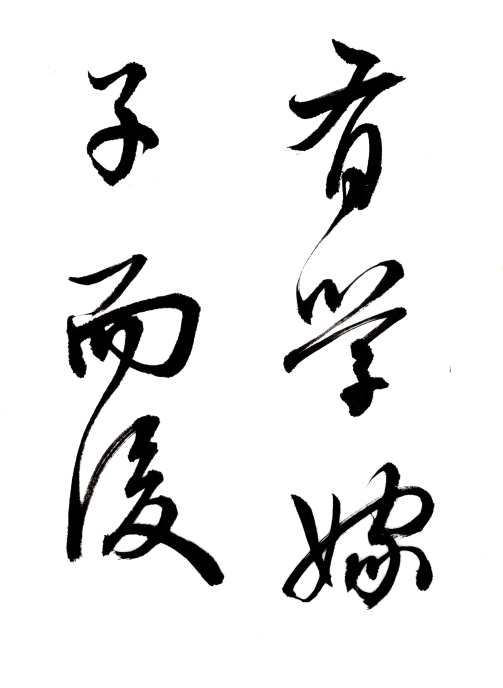 有学嫁
子而後